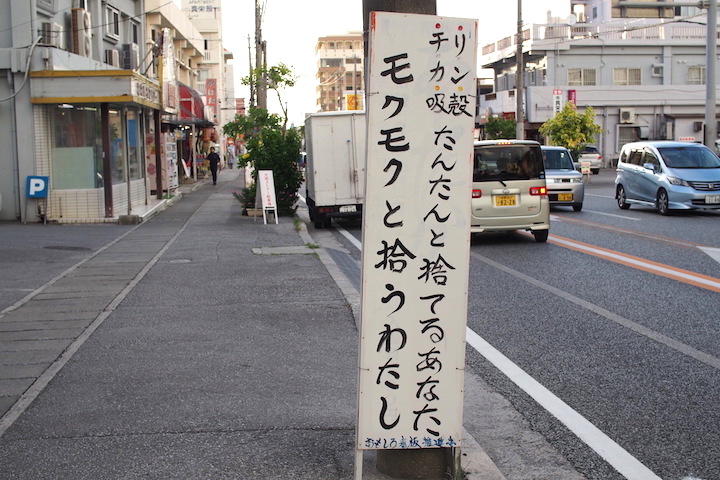 チリ
カン
吸殻
たんたんと捨てるあなた
モクモクと拾うわたし
おもしろ看板推進
P